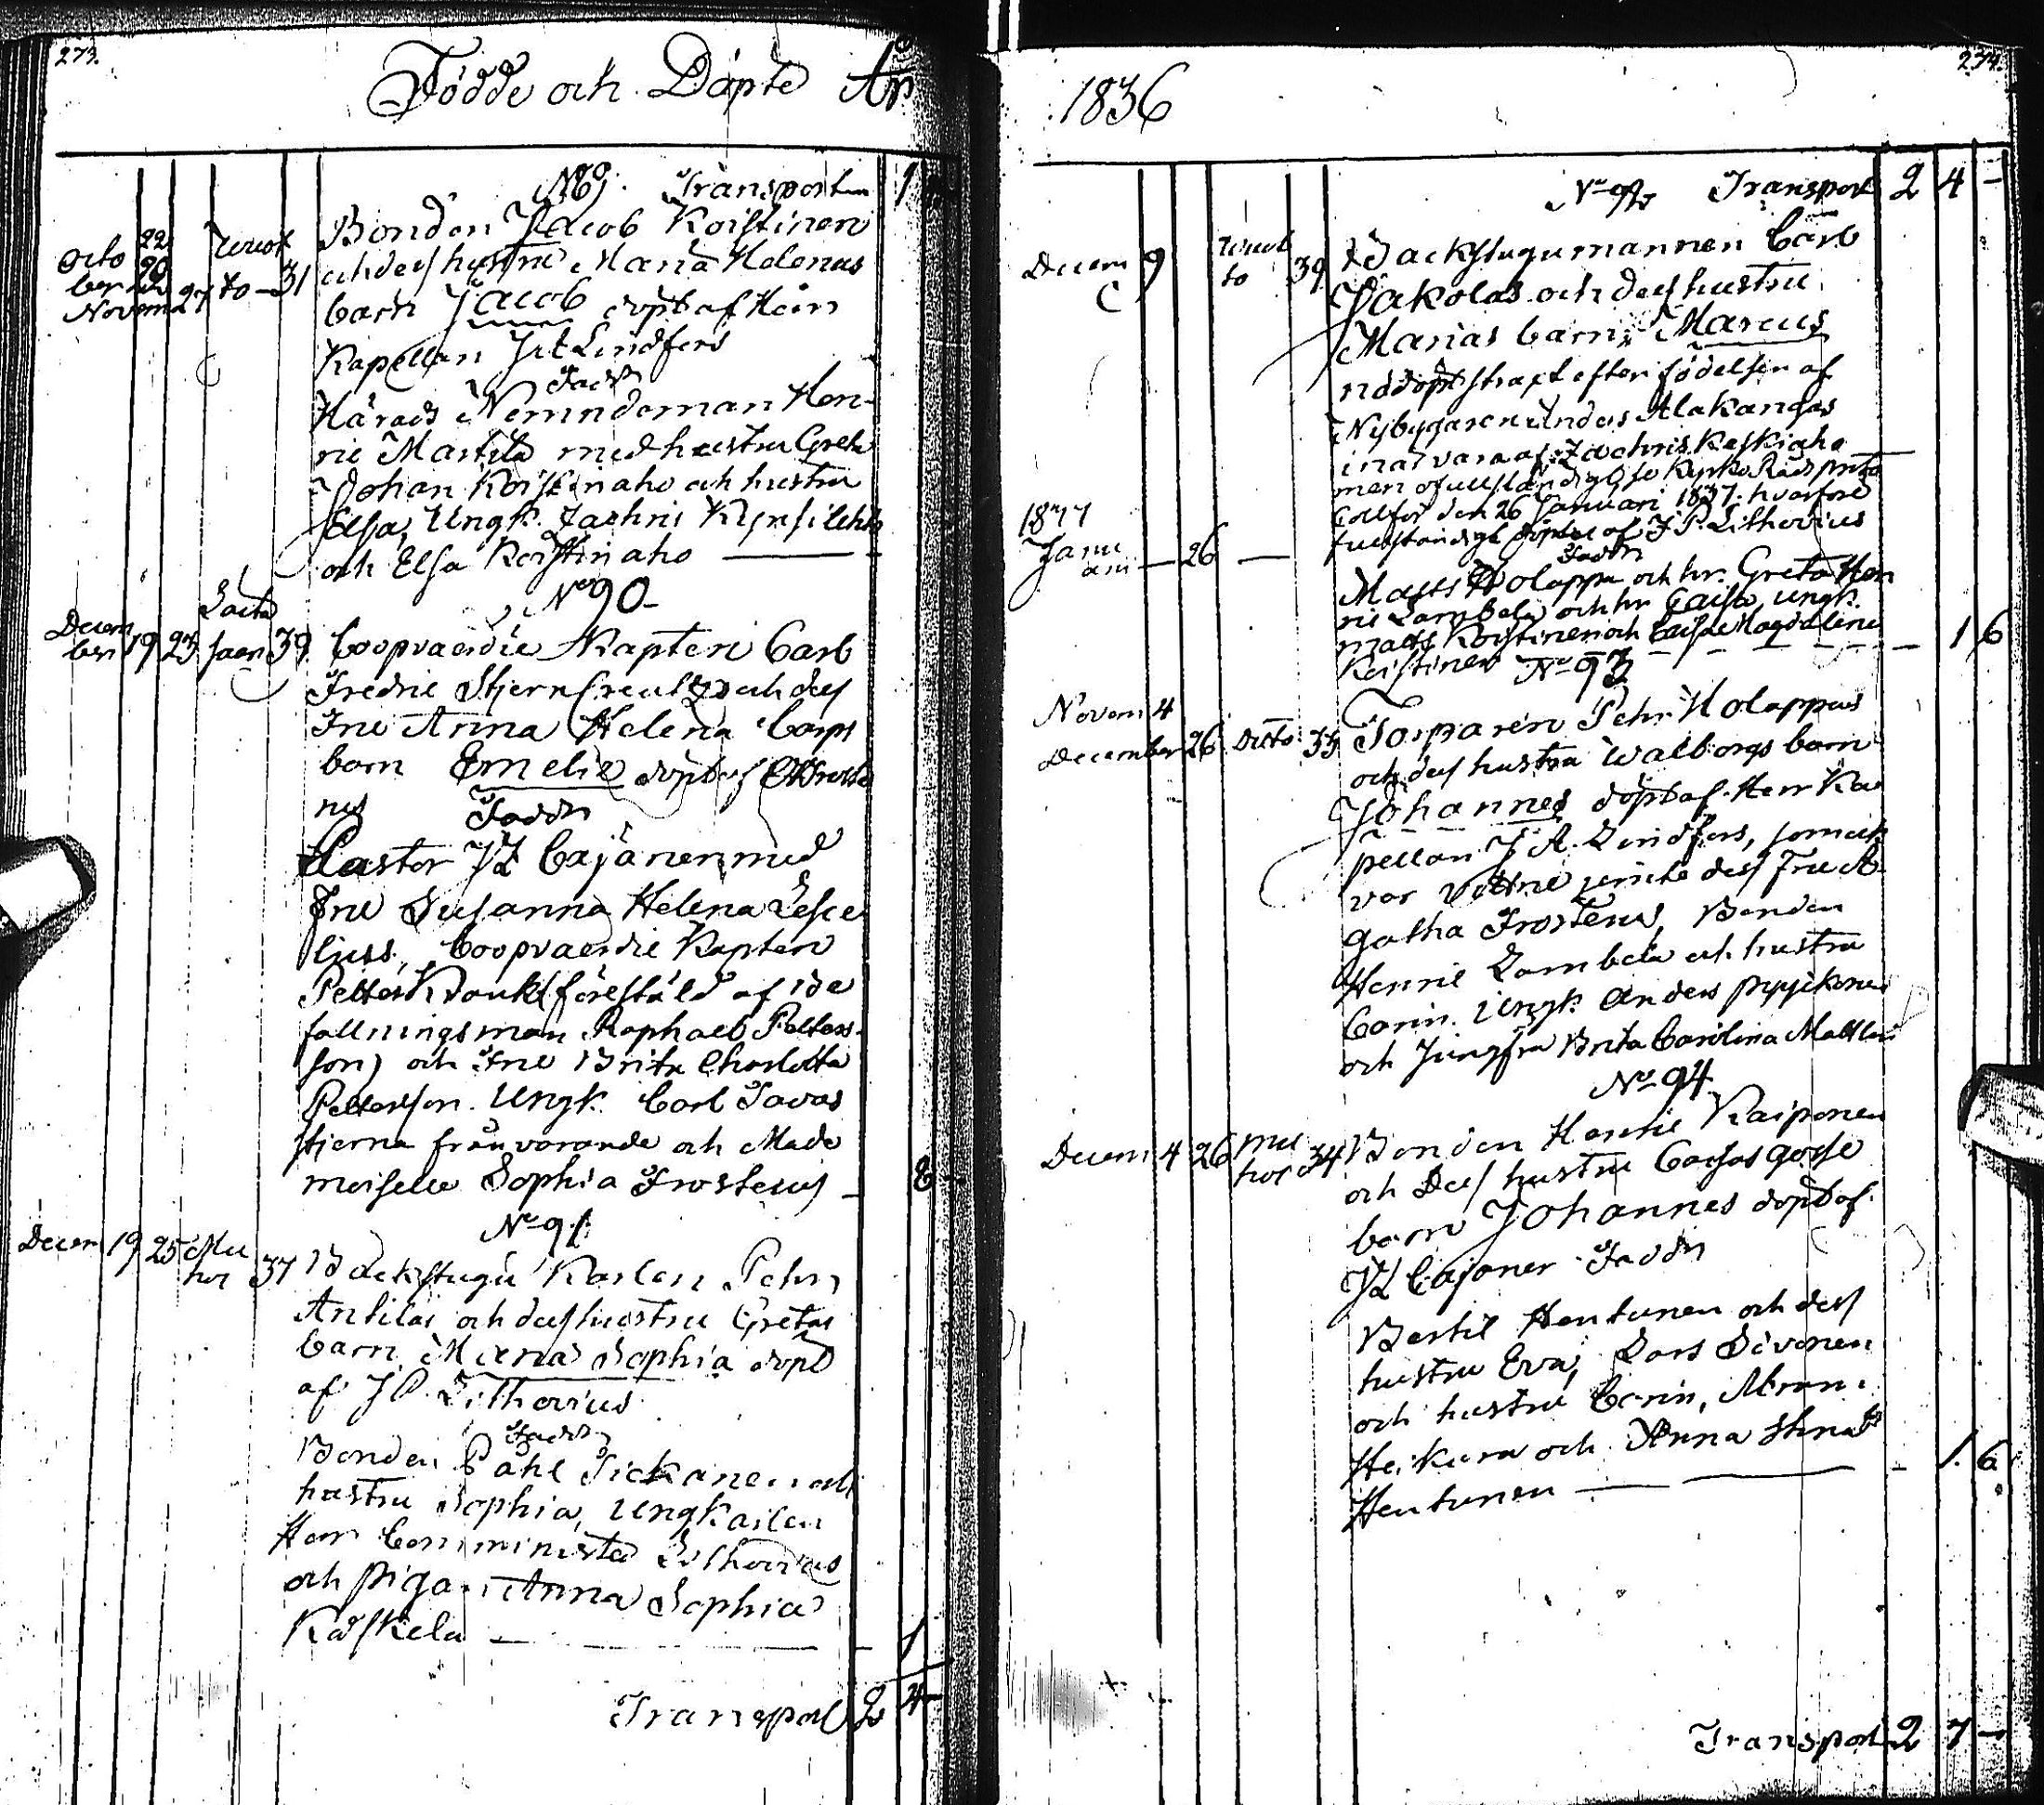 273.
Födde och Döpte År
Transport
Bonden Jacob Koistinen
och dess hustru Maria Helenas
barn Jacob döpt af Herr
Kapellan J A Lindfors
Faddr
Härads Nemndeman Hen-
ric Martila med hustru Greta
Johan Koistinaho och hustru
Elsa, Ungk. Zachris Kynsilehto
och Elsa Koistinaho
Octo 22
ber
Novem 27 to 31
No 90
Decem
ber 19 25 39
Coopvaerdie Kapten Carl
Fredric Stjerncreutz och dess
Fru Anna Helena
barn Emelie döpt af
Faddr
Pastor J Z Cajanen med
Fru Susanna Helena
Coopvaerdie Kapten
Petter (förestäld af
fallningsman Raphael Petters-
son) och Fru Brita Charlotta
Pettersson. Ungk. Carl Tavas
stjerna frånvarande och Made
moiselle Sophia Frosterus
8
No 91
Decem 19 25 Mu
hos 37
Backstugu Karlen Pehr
Antilas och dess hustru Gretas
barn Maria Sophia döpt
af J P. Lithovius
Faddr
Bonden Påhl Tickanen och
hustru Sophia, Ungkarlen
Herr Comminister Lithovius
och pigan Anna Sophia
Kaskela 1
Transport 2 4
1836
274.
Transport 2 4 –
Decem 9 39
Backstugumannen Carl
Jakolas och dess hustru
Marias barn Marcus
nöddöpt straxt efter födelsen af
Nybyggaren Anders Alakangas
i närvaro af Zachris Keskiaho
men ofullständigt
den 26 Januari 1837. hvarföre
fullständigt döptes af J P. Lithovius
1837
Janu
ari 26 –
Faddr
Matts Holappa och hr. Greta Hen
ric Lambela och hr Caisa, ungk.
Matts Koistinen och Magdalena
Koistinen
1 6
No 93
Novem 4
December 26 Ditto 33
Torparen Pehr Holappas
och dess hustru Walborgs barn
Johannes döpt af Herr Ka
pellan J A. Lindfors, som ock
var Vittne jemte dess Fru A-
gatha Frosterus, Bonden
Henric Lambela och hustru
Carin. Ungk. Anders Pyykönen
och Jungfru Brita Carolina
No 94
Decem 4 26 Mu
hos 34
Bonden Henric Kaiponen
och Dess hustru Caisas gosse
barn Johannes döpt af
J Z Cajaner Faddr
Bertil Heutunen och dess
hustru Eva, Lars Sivonen
och hustru Carin, Abram
Heikura och Anna Stina
Heutunen
1. 6
Transport 2 7 –